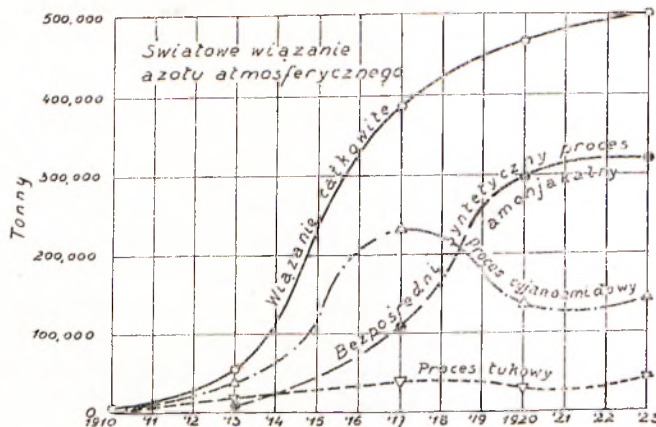 500,000
400,000
300,000
200,000
100,000
0
Tonny
Światowe wiązanie
azotu atmosferycznego
Wiązanie całkowite
Bezpośredni syntetyczny proces
amonjakalny
Proces cyjanamidowy
Proces łukowy
1910 '11 '12 '13 '14 '15 '16 '17 '18 '19 1920 '21 '22 '23